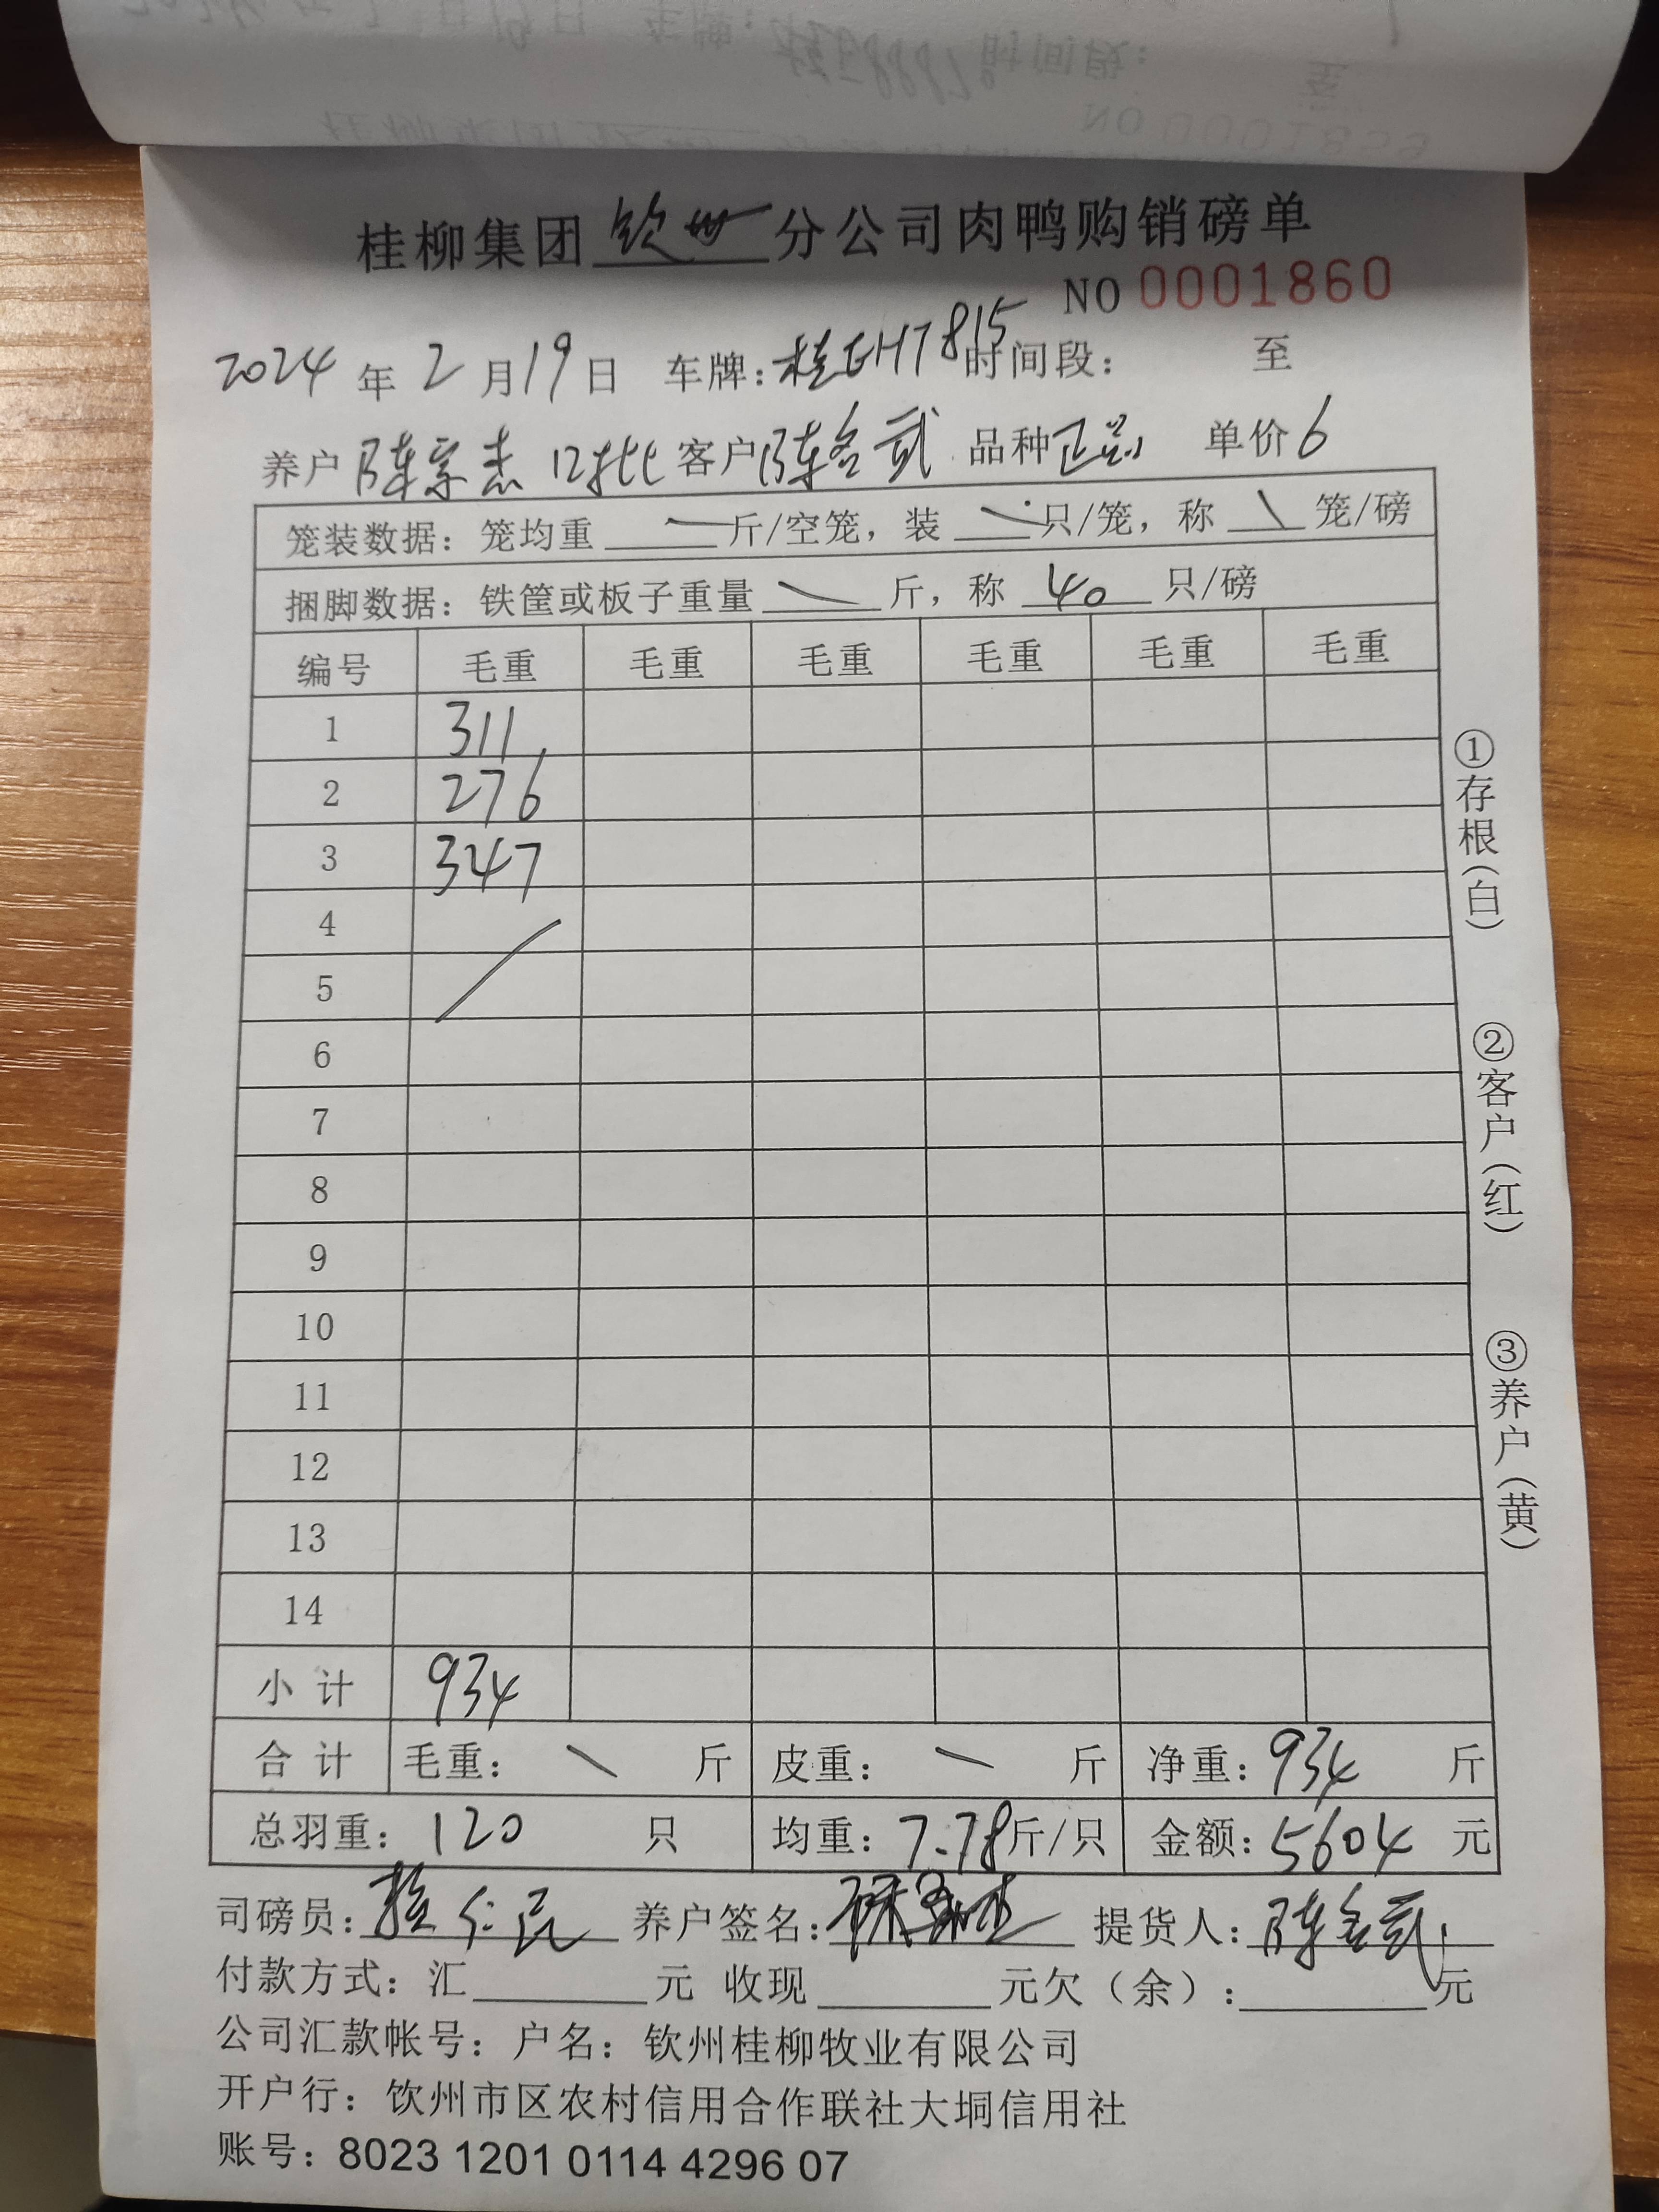 桂柳集团 钦州 分公司肉鸭购销磅单
NO 0001860
2024 年 2 月 19 日 车牌: 桂EH7815 时间段: 至
养户 陈宗杰 12批 客户 陈 武 品种 单价 6
笼装数据: 笼均重 斤/空笼, 装 只/笼, 称 笼/磅
捆脚数据: 铁筐或板子重量 斤, 称 40 只/磅
编号 毛重 毛重 毛重 毛重 毛重 毛重
1 311
2 276
3 347
4
5
6
7
8
9
10
11
12
13
14
小计 934
合计 毛重: 斤 皮重: 斤 净重: 934 斤
总羽重: 120 只 均重: 7.78 斤/只 金额: 5604 元
司磅员: 仁民 养户签名: 提货人: 陈 武
付款方式: 汇 元 收现 元欠（余）: 元
公司汇款帐号: 户名: 钦州桂柳牧业有限公司
开户行: 钦州市区农村信用合作联社大垌信用社
账号: 8023 1201 0114 4296 07
①存根(白)
②客户(红)
③养户(黄)